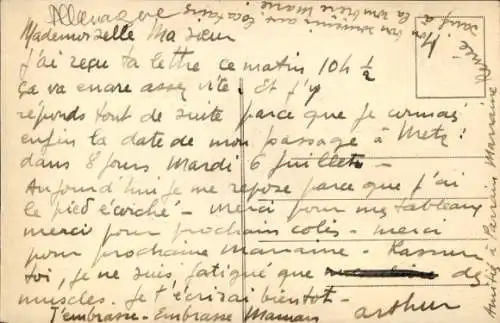 Allemagne
Mon bon souvenir aux locataires
à la Marie
sauf à René
Mademoiselle Ma sœur
J'ai reçu ta lettre ce matin 10h ½
ça va encore assez vite. Et j'y
réponds tout de suite parce que je connais
enfin la date de mon passage à Metz :
dans 8 jours Mardi 6 juillet -
Aujourd'hui je me repose parce que j'ai
le pied écorché - merci pour mes tableaux
merci pour prochain colis - merci
pour prochaine Marraine - Rassure
toi, je ne suis fatigué que des
muscles. Je t'écrirai bientôt -
T'embrasse - Embrasse Maman
Arthur
Amitiés à Parrain Marraine